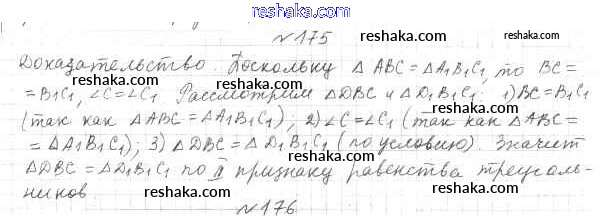 reshaka.com
№175
reshaka.com reshaka.com
Доказательство. Поскольку △ ABC = △A₁B₁C₁, то BC =
= B₁C₁, ∠C = ∠C₁ Рассмотрим △DBC и △D₁B₁C₁: 1) BC = B₁C₁
(так как △ABC = △A₁B₁C₁); 2) ∠C = ∠C₁ (так как △ABC =
= △A₁B₁C₁); 3) △DBC = △D₁B₁C₁ (по условию). Значит
△DBC = △D₁B₁C₁ по II признаку равенства треуголь-
ников.
reshaka.com reshaka.com
№176